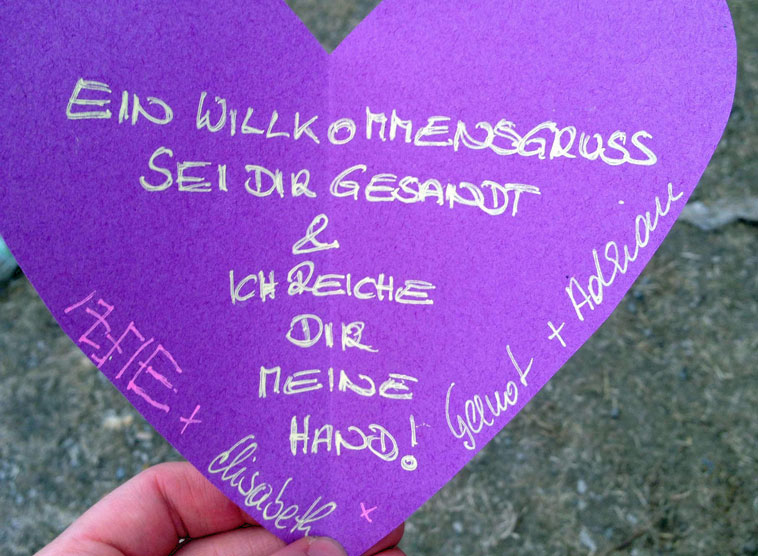 EIN WILLKOMMENSGRUSS
SEI DIR GESANDT
&
ICH REICHE
DIR
MEINE
HAND!
+
Elisabeth
+
Gernot + Adrian